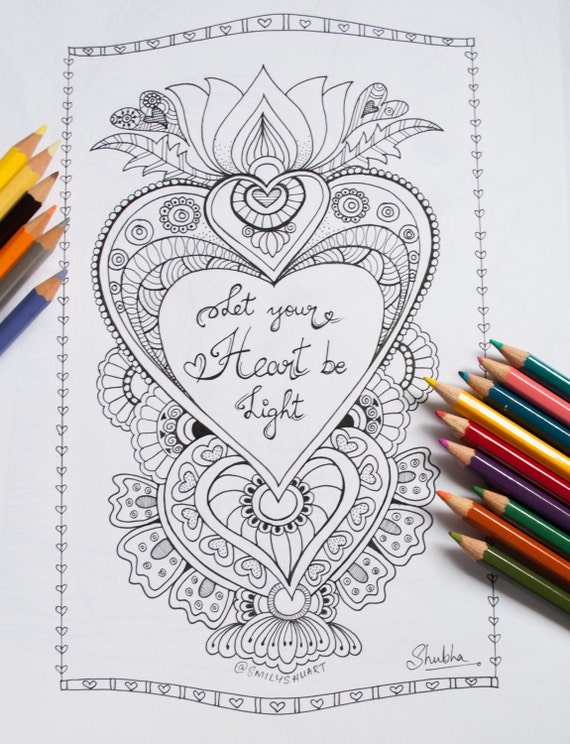 Let your
Heart be
Light
@SMILYSHUART
Shubha.